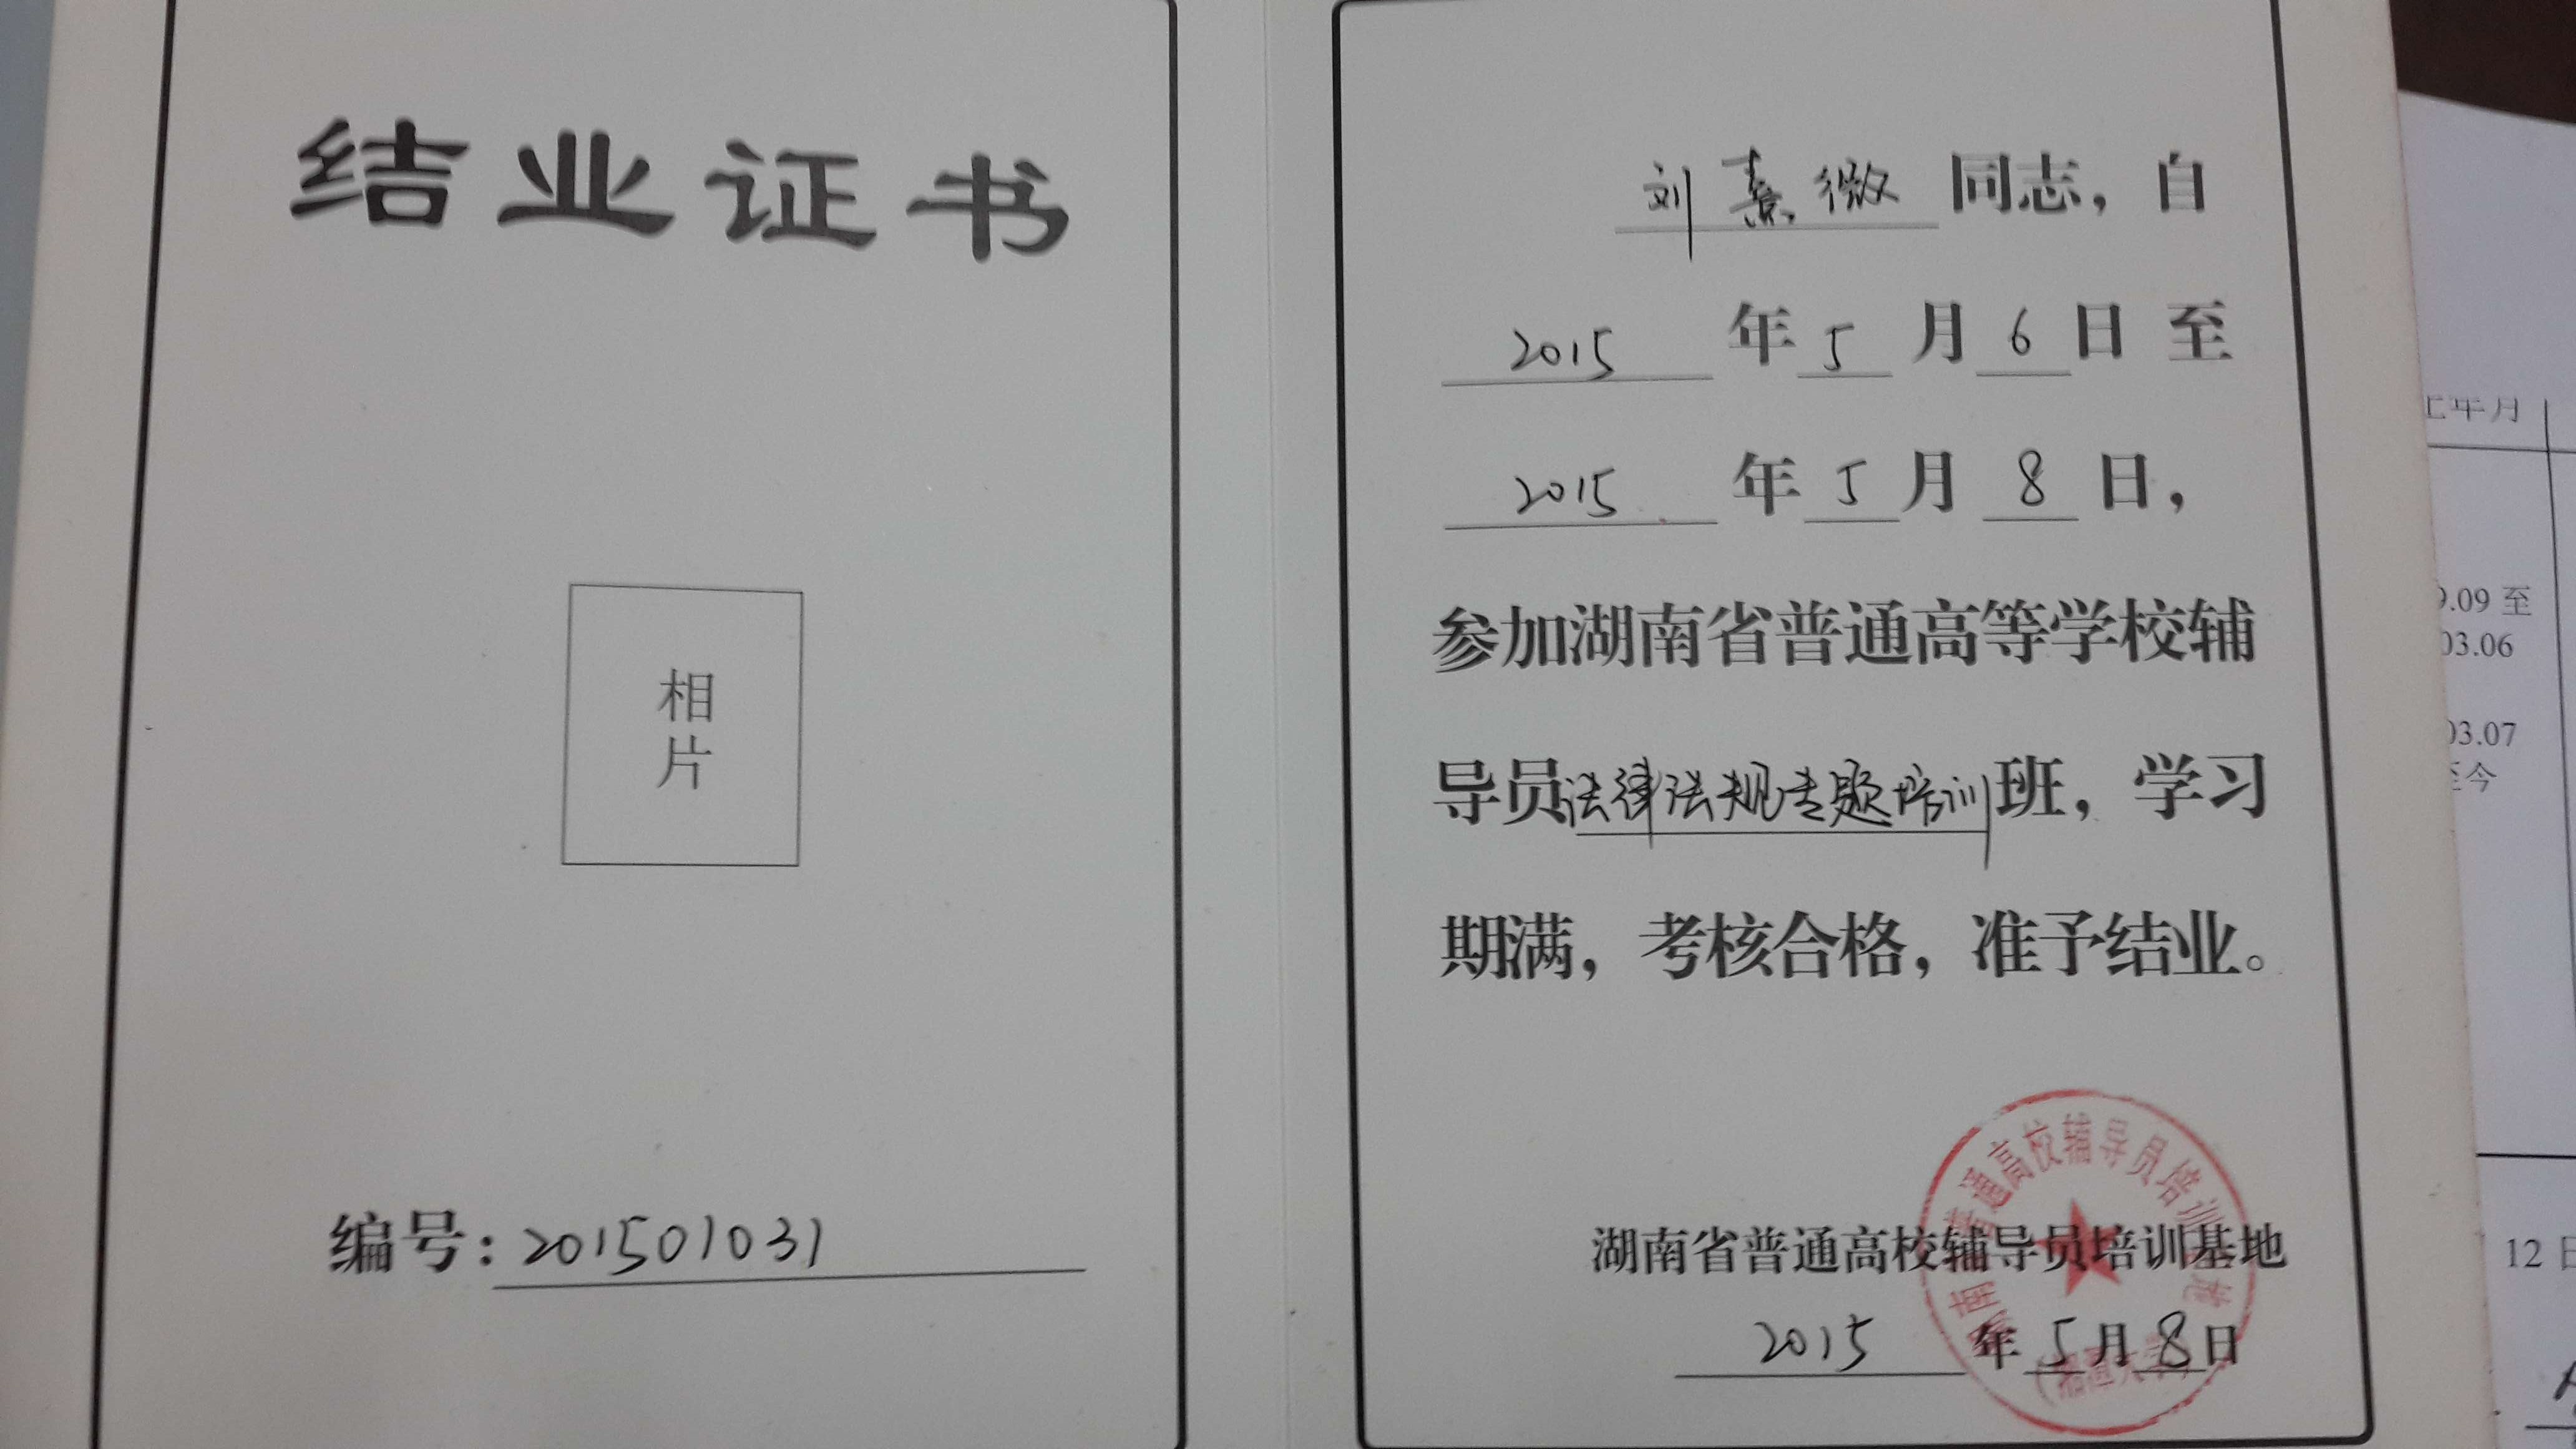 结业证书
相
片
编号：201501031
刘熹微同志，自
2015年5月6日至
2015年5月8日，
参加湖南省普通高等学校辅
导员法律法规专题培训班，学习
期满，考核合格，准予结业。
湖南省普通高校辅导员培训基地
2015年5月8日
湖南省普通高校辅导员培训基地
年月
9.09至
03.06
03.07
至今
12日